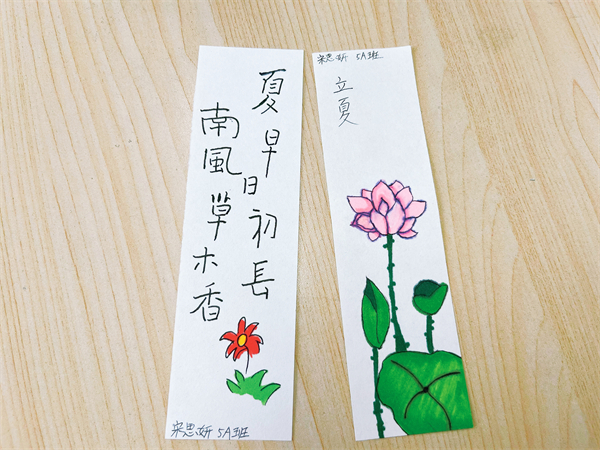 夏早日初長
南風草木香
宋思妍 5A班
宋思妍 5A班
立夏